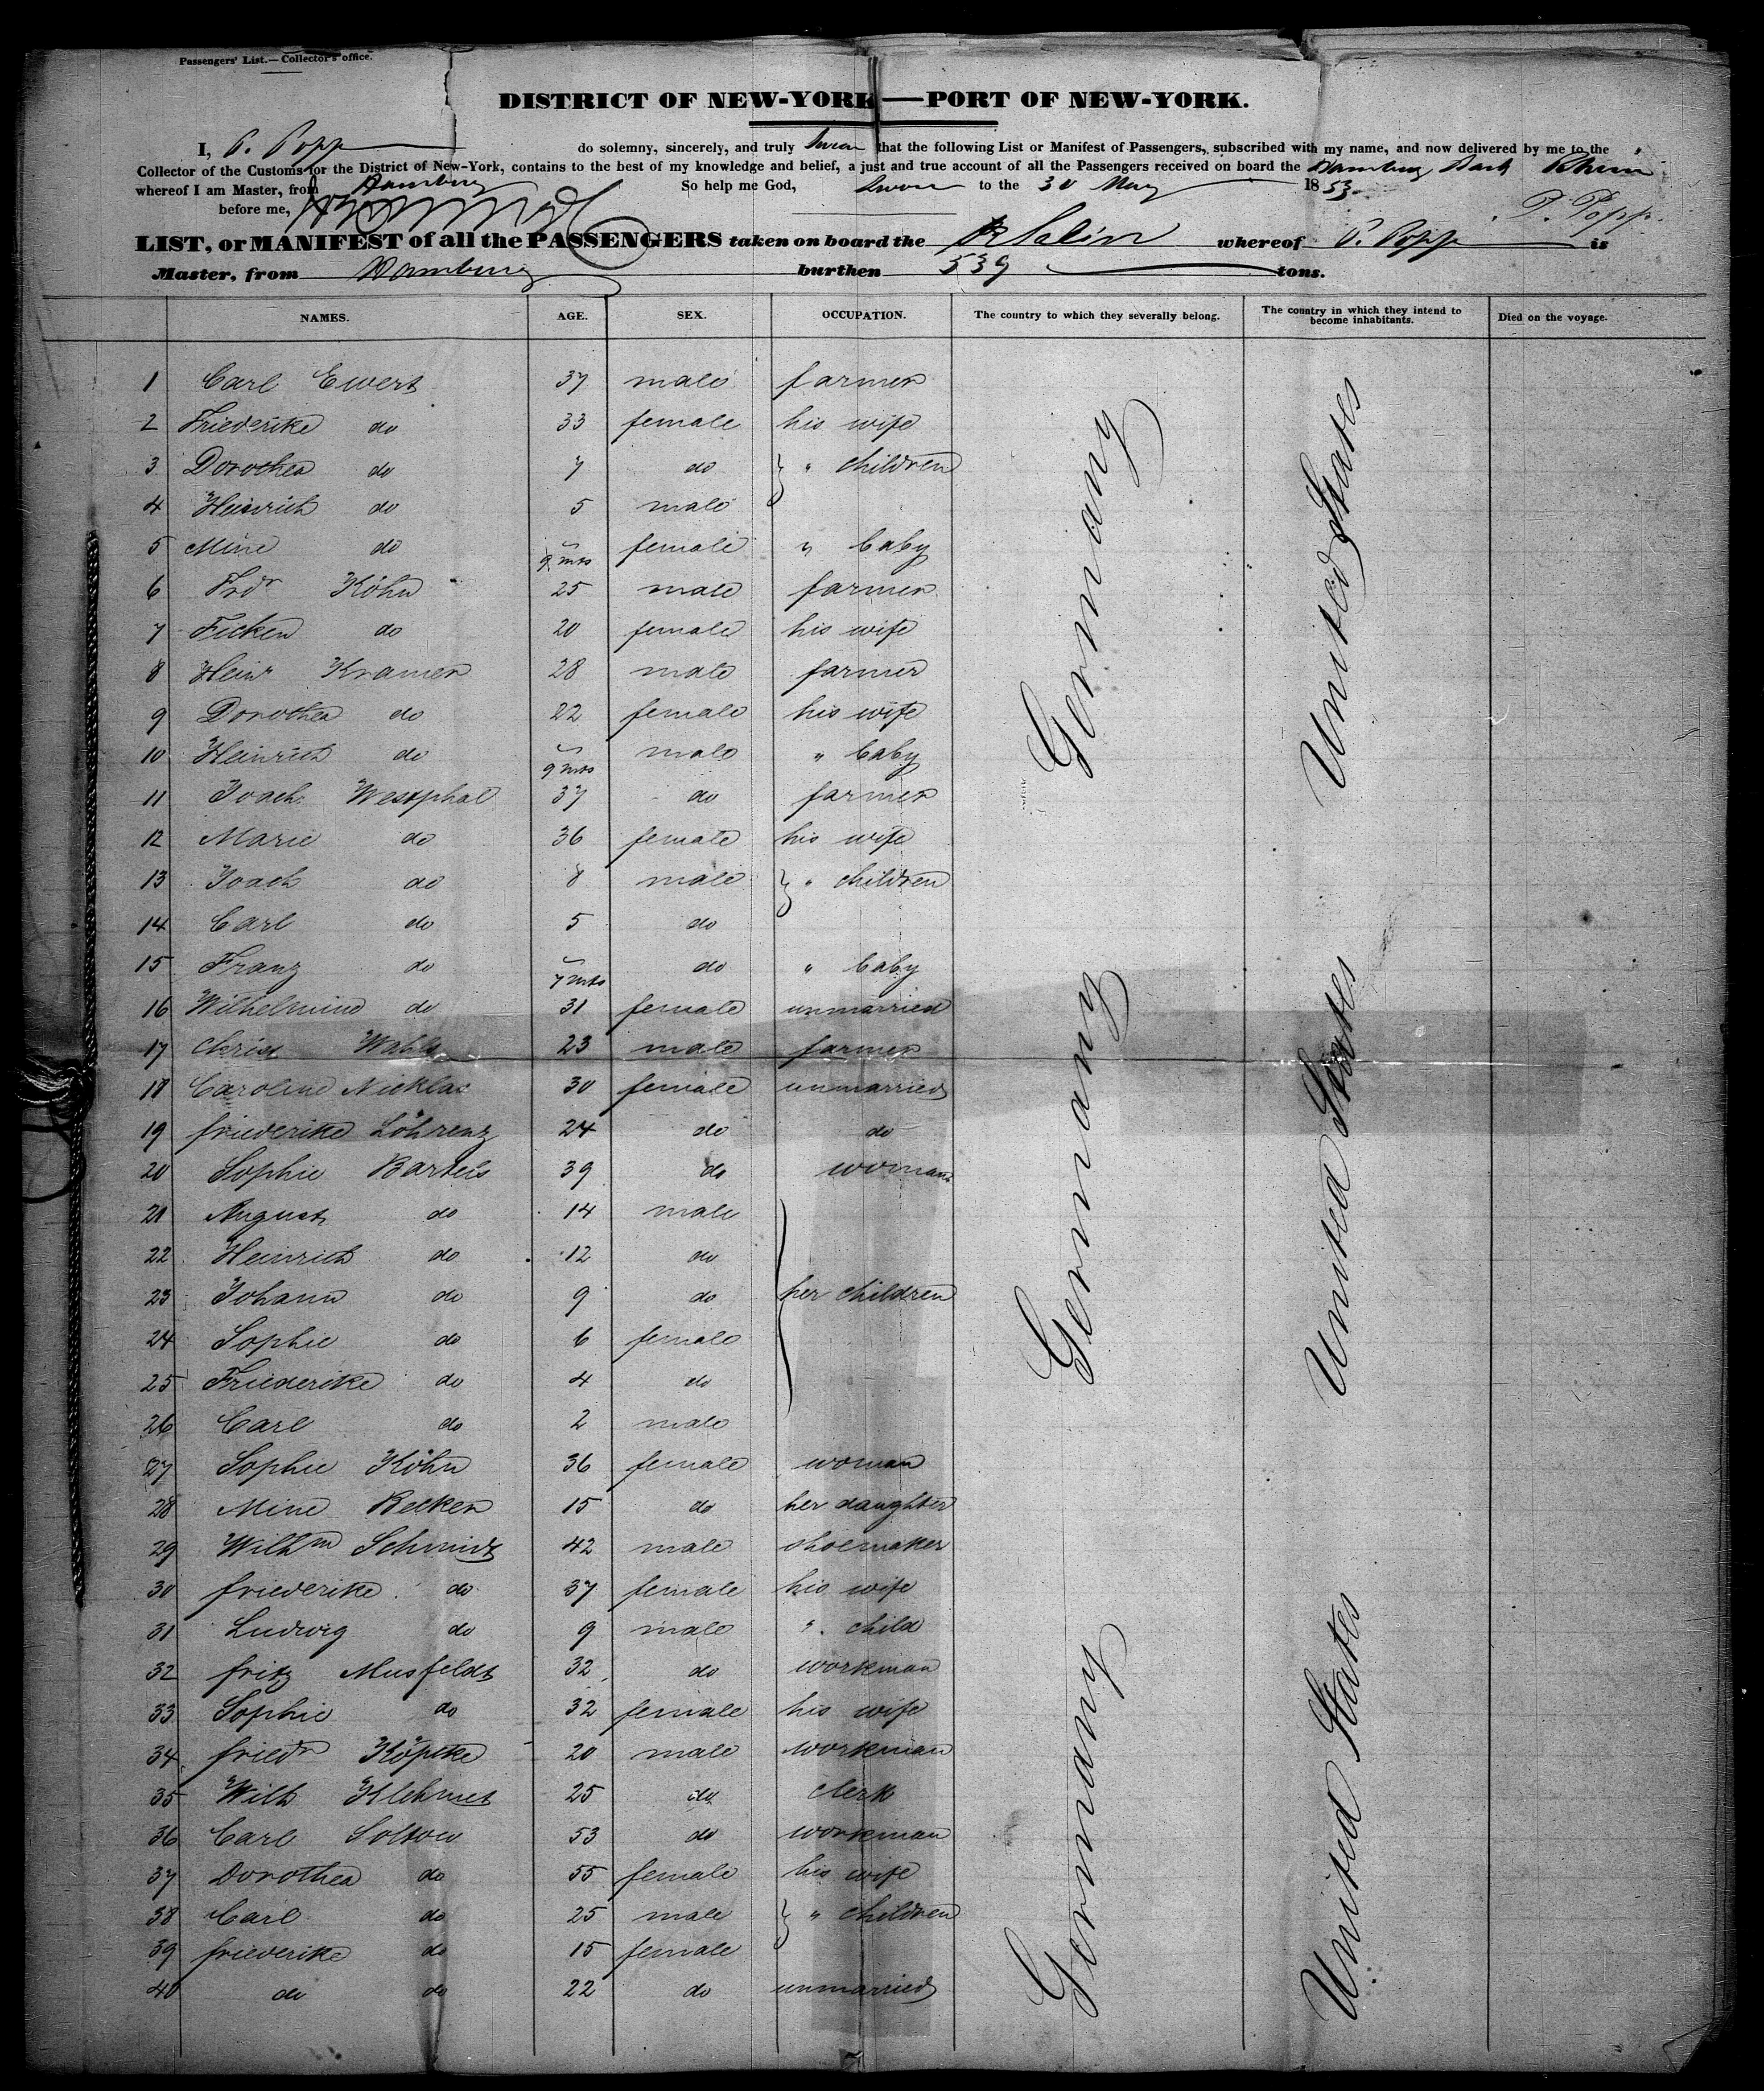 Passengers' List.—Collector's office.
DISTRICT OF NEW-YORK—PORT OF NEW-YORK.
I, P. Popp do solemny, sincerely, and truly swear that the following List or Manifest of Passengers, subscribed with my name, and now delivered by me to the
Collector of the Customs for the District of New-York, contains to the best of my knowledge and belief, a just and true account of all the Passengers received on board the Hamburg Bark Rhein
whereof I am Master, from Hamburg So help me God, Sworn to the 30 May 1853.
before me, P. Popp.
LIST, or MANIFEST of all the PASSENGERS taken on board the whereof P. Popp is
Master, from Hamburg burthen 539 tons.
NAMES. AGE. SEX. OCCUPATION. The country to which they severally belong. The country in which they intend to become inhabitants. Died on the voyage.
1 Carl Ewert 37 male farmer
2 Friederike do 33 female his wife
3 Dorothea do 7 do " children
4 Heinrich do 5 male
5 Mine do 9 mts female " baby
6 Frdr Köhn 25 male farmer
7 Ficken do 20 female his wife
8 Heinr Kramer 28 male farmer
9 Dorothea do 22 female his wife
10 Heinrich do 9 mts male " baby
11 Joach. Westphal 37 do farmer
12 Marie do 36 female his wife
13 Joach do 8 male " children
14 Carl do 5 do
15 Franz do 7 mts do " baby
16 Wilhelmine do 31 female unmarried
17 Christ 23 male farmer
18 Caroline Nicklas 30 female unmarried
19 friederike Löhrenz 24 do do
20 Sophie Bartels 39 do woman
21 August do 14 male
22 Heinrich do 12 do
23 Johann do 9 do her children
24 Sophie do 6 female
25 Friederike do 4 do
26 Carl do 2 male
27 Sophie Köhn 36 female woman
28 Mine Becker 15 do her daughter
29 Wilhm Schmidt 42 male shoemaker
30 friederike do 37 female his wife
31 Ludwig do 9 male " child
32 fritz Musfeldt 32 do workman
33 Sophie do 32 female his wife
34 friedr Köpcke 20 male workman
35 Wilh Klehmet 25 do clerk
36 Carl Soltow 53 do workman
37 Dorothea do 55 female his wife
38 Carl do 25 male " children
39 friederike do 15 female
40 do do 22 do unmarried
Germany
United States
Germany
United States
Germany
United States